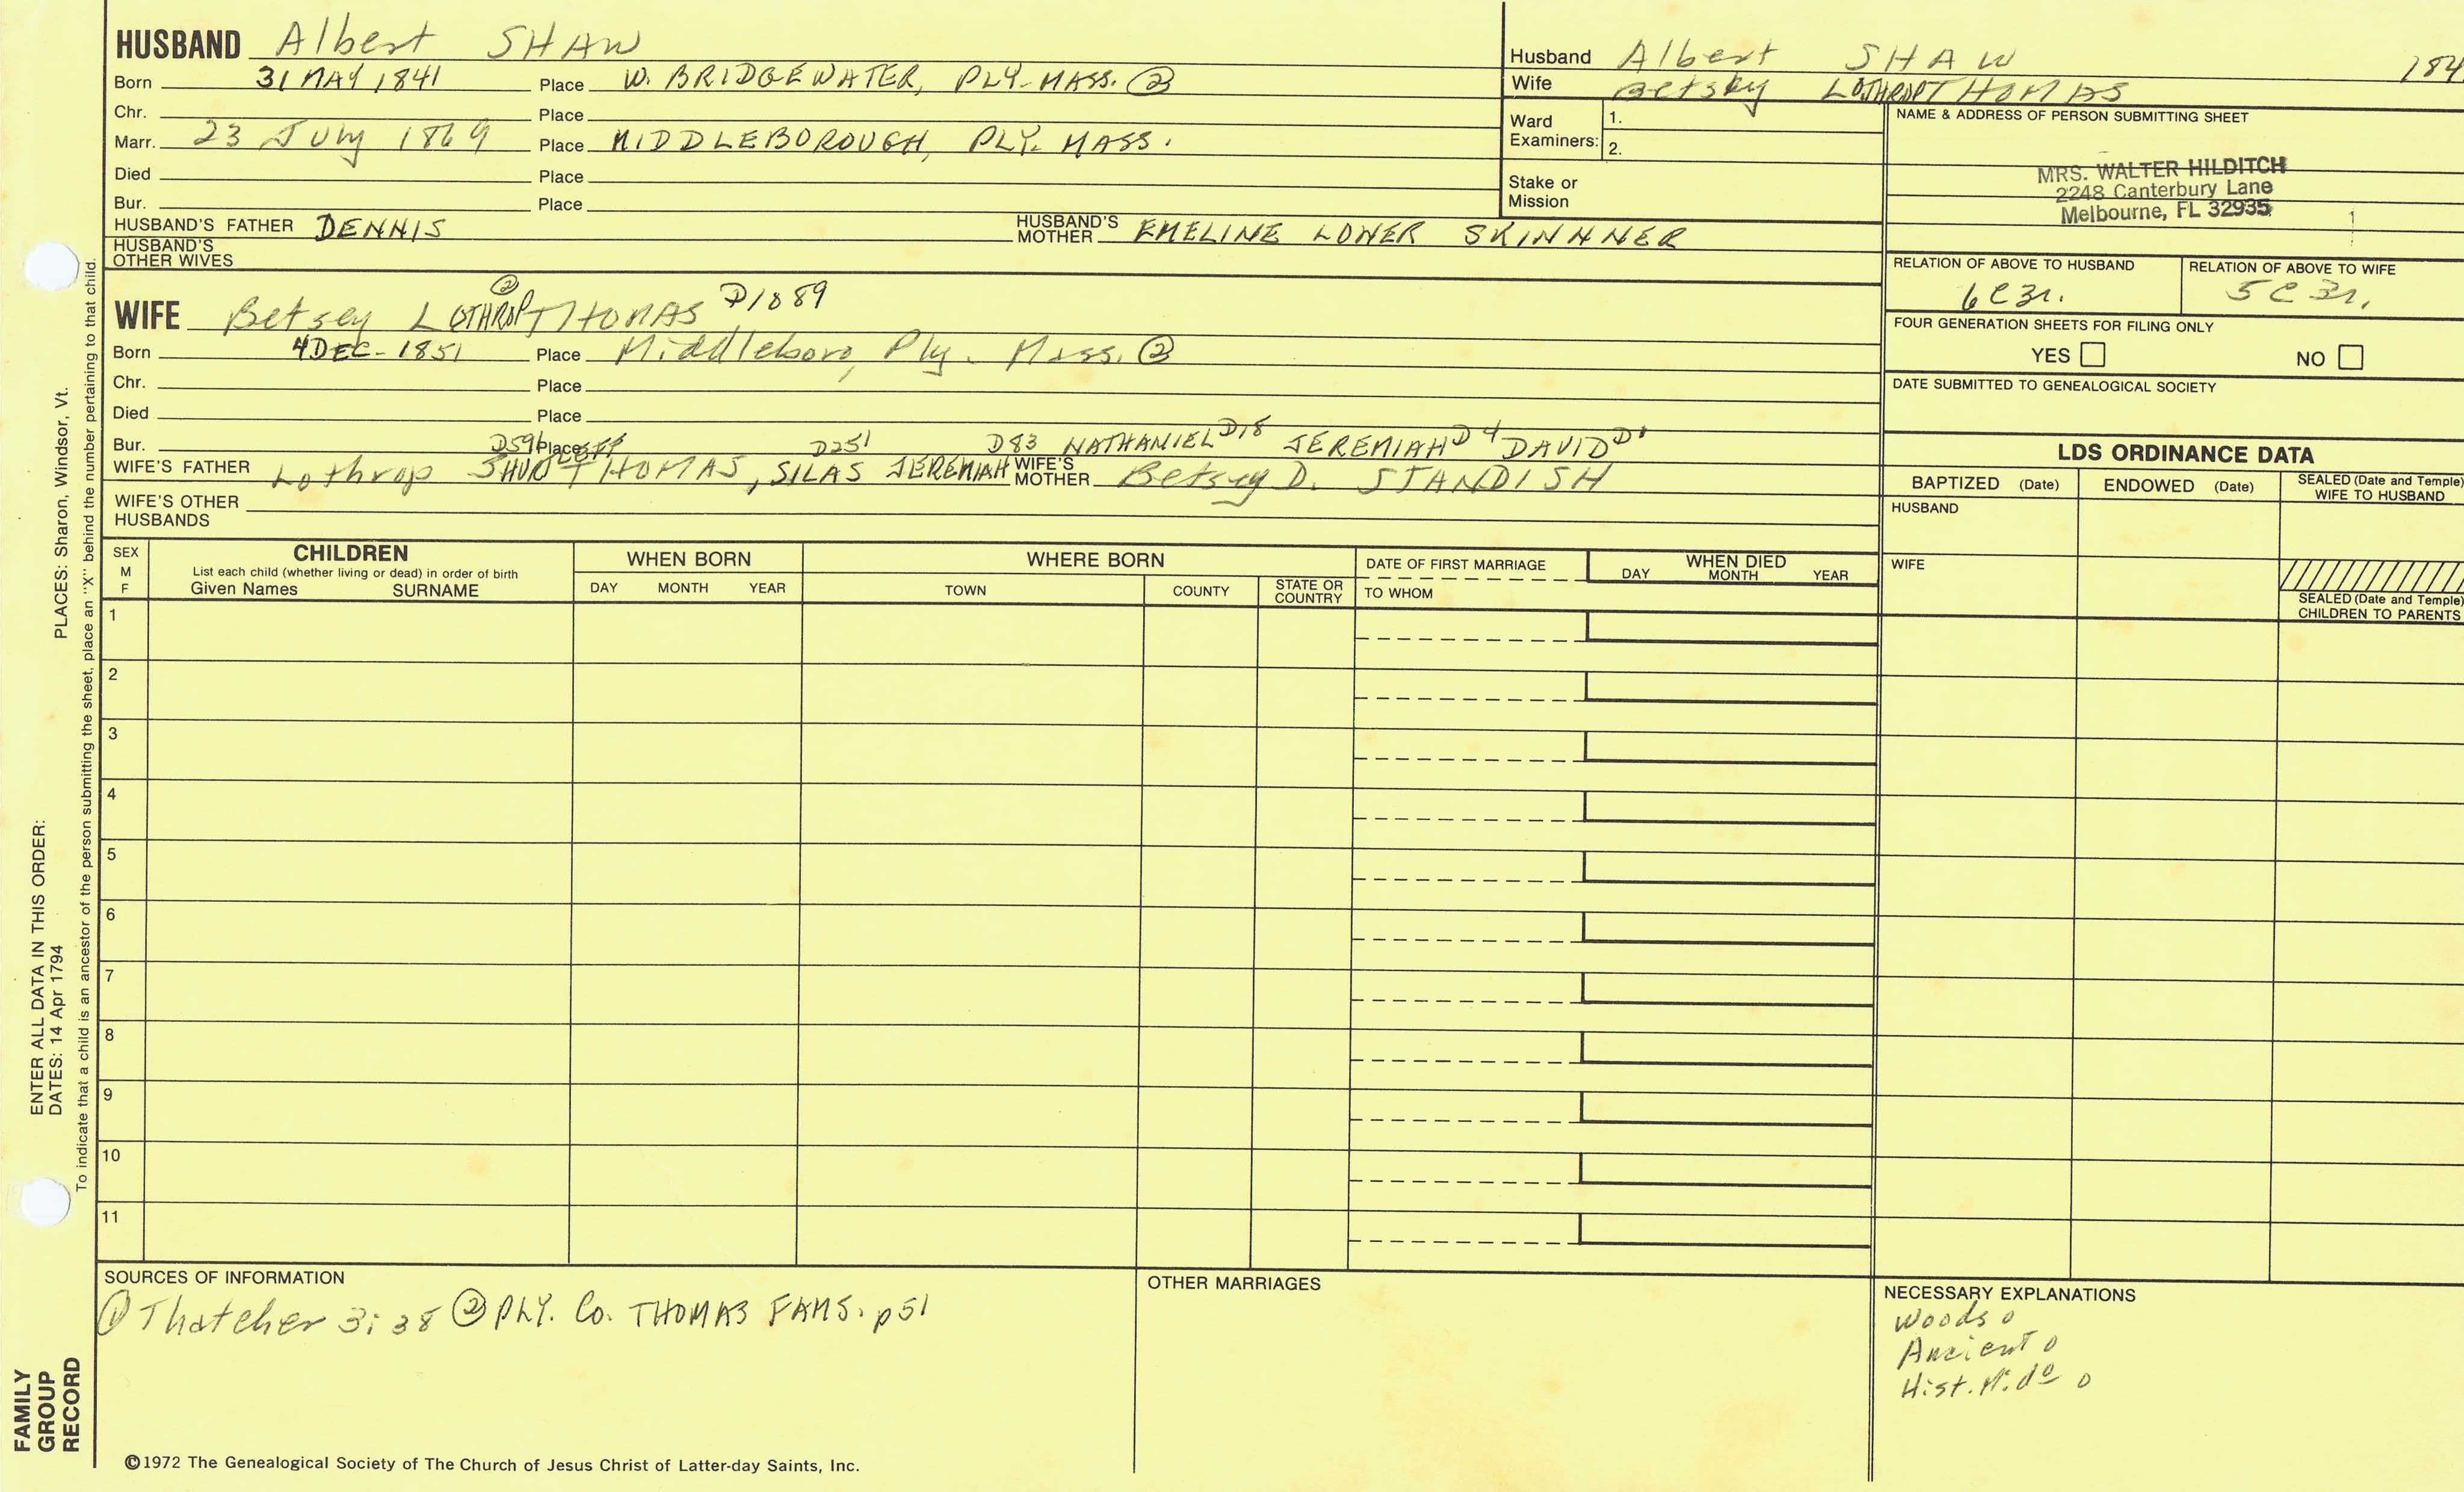 HUSBAND Albert SHAW
Born 31 MAY 1841 Place W. BRIDGEWATER, PLY. MASS. ②
Chr. Place
Marr. 23 July 1869 Place MIDDLEBOROUGH, PLY. MASS.
Died Place
Bur. Place
HUSBAND'S FATHER DENNIS HUSBAND'S MOTHER EMELINE LOWER SKINNNER
HUSBAND'S OTHER WIVES
②
WIFE Betsey LOTHROP THOMAS D1089
Born 4 DEC - 1851 Place Middleboro, Ply. Mass. ②
Chr. Place
Died Place
Bur. Place
D596 D251 D83 NATHANIEL D18 JEREMIAH D4 DAVID D1
WIFE'S FATHER Lothrop THOMAS, SILAS JEREMIAH WIFE'S MOTHER Betsey D. STANDISH
WIFE'S OTHER HUSBANDS
Husband Albert SHAW 184
Wife Betsey LOTHROP THOMAS
Ward Examiners: 1.
2.
Stake or Mission
NAME & ADDRESS OF PERSON SUBMITTING SHEET
MRS. WALTER HILDITCH
2248 Canterbury Lane
Melbourne, FL 32935
RELATION OF ABOVE TO HUSBAND RELATION OF ABOVE TO WIFE
6C3r. 5C3r.
FOUR GENERATION SHEETS FOR FILING ONLY
YES NO
DATE SUBMITTED TO GENEALOGICAL SOCIETY
LDS ORDINANCE DATA
BAPTIZED (Date) ENDOWED (Date) SEALED (Date and Temple) WIFE TO HUSBAND
HUSBAND
WIFE
SEALED (Date and Temple)
CHILDREN TO PARENTS
SEX M F
CHILDREN
List each child (whether living or dead) in order of birth
Given Names SURNAME
WHEN BORN
DAY MONTH YEAR
WHERE BORN
TOWN COUNTY STATE OR COUNTRY
DATE OF FIRST MARRIAGE
TO WHOM
WHEN DIED
DAY MONTH YEAR
1
2
3
4
5
6
7
8
9
10
11
SOURCES OF INFORMATION
① Thatcher 3:38 ② PLY. Co. THOMAS FAMS. p51
OTHER MARRIAGES
NECESSARY EXPLANATIONS
Woods 0
Ancient 0
Hist. Mido 0
©1972 The Genealogical Society of The Church of Jesus Christ of Latter-day Saints, Inc.
FAMILY
GROUP
RECORD
ENTER ALL DATA IN THIS ORDER:
DATES: 14 Apr 1794 PLACES: Sharon, Windsor, Vt.
To indicate that a child is an ancestor of the person submitting the sheet, place an "X" behind the number pertaining to that child.